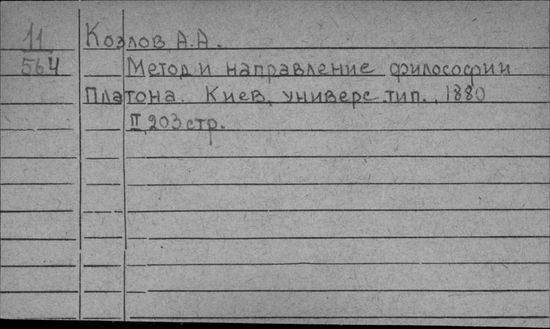 11 Козлов, А.А.
564 Метод и направление философии
Платона. Киев, универс. тип., 1880
II, 203 стр.